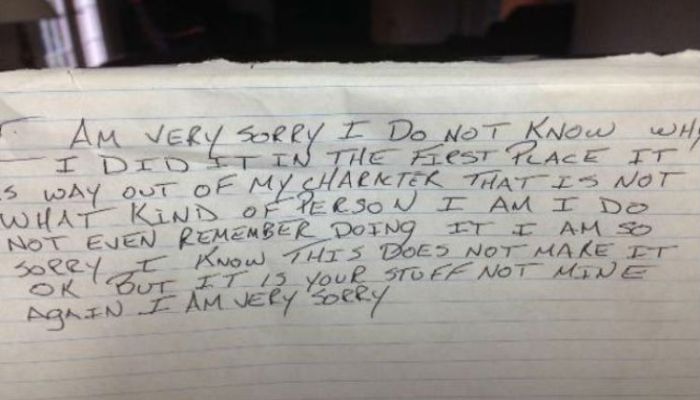 I AM VERY SORRY I DO NOT KNOW WHY
I DID IT IN THE FIRST PLACE IT
IS WAY OUT OF MY CHARKTER THAT IS NOT
WHAT KIND OF PERSON I AM I DO
NOT EVEN REMEMBER DOING IT I AM SO
SORRY I KNOW THIS DOES NOT MAKE IT
OK BUT IT IS YOUR STUFF NOT MINE
AGAIN I AM VERY SORRY